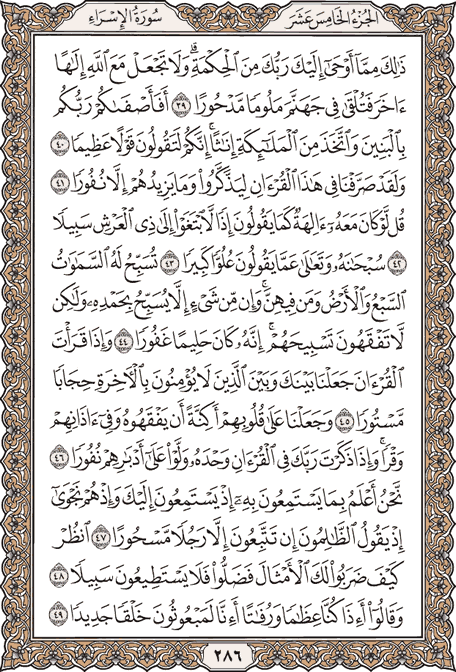 الجزء الخامس عشر
سورة الإسراء
ذَٰلِكَ مِمَّآ أَوْحَىٰٓ إِلَيْكَ رَبُّكَ مِنَ ٱلْحِكْمَةِۗ وَلَا تَجْعَلْ مَعَ ٱللَّهِ إِلَٰهًا
ءَاخَرَ فَتُلْقَىٰ فِى جَهَنَّمَ مَلُومًا مَّدْحُورًا ٣٩ أَفَأَصْفَىٰكُمْ رَبُّكُم
بِٱلْبَنِينَ وَٱتَّخَذَ مِنَ ٱلْمَلَٰٓئِكَةِ إِنَٰثًاۚ إِنَّكُمْ لَتَقُولُونَ قَوْلًا عَظِيمًا ٤٠
وَلَقَدْ صَرَّفْنَا فِى هَٰذَا ٱلْقُرْءَانِ لِيَذَّكَّرُوا۟ وَمَا يَزِيدُهُمْ إِلَّا نُفُورًا ٤١
قُل لَّوْ كَانَ مَعَهُۥٓ ءَالِهَةٌ كَمَا يَقُولُونَ إِذًا لَّٱبْتَغَوْا۟ إِلَىٰ ذِى ٱلْعَرْشِ سَبِيلًا
٤٢ سُبْحَٰنَهُۥ وَتَعَٰلَىٰ عَمَّا يَقُولُونَ عُلُوًّا كَبِيرًا ٤٣ تُسَبِّحُ لَهُ ٱلسَّمَٰوَٰتُ
ٱلسَّبْعُ وَٱلْأَرْضُ وَمَن فِيهِنَّۚ وَإِن مِّن شَىْءٍ إِلَّا يُسَبِّحُ بِحَمْدِهِۦ وَلَٰكِن
لَّا تَفْقَهُونَ تَسْبِيحَهُمْۚ إِنَّهُۥ كَانَ حَلِيمًا غَفُورًا ٤٤ وَإِذَا قَرَأْتَ
ٱلْقُرْءَانَ جَعَلْنَا بَيْنَكَ وَبَيْنَ ٱلَّذِينَ لَا يُؤْمِنُونَ بِٱلْءَاخِرَةِ حِجَابًا
مَّسْتُورًا ٤٥ وَجَعَلْنَا عَلَىٰ قُلُوبِهِمْ أَكِنَّةً أَن يَفْقَهُوهُ وَفِىٓ ءَاذَانِهِمْ
وَقْرًاۚ وَإِذَا ذَكَرْتَ رَبَّكَ فِى ٱلْقُرْءَانِ وَحْدَهُۥ وَلَّوْا۟ عَلَىٰٓ أَدْبَٰرِهِمْ نُفُورًا ٤٦
نَّحْنُ أَعْلَمُ بِمَا يَسْتَمِعُونَ بِهِۦٓ إِذْ يَسْتَمِعُونَ إِلَيْكَ وَإِذْ هُمْ نَجْوَىٰٓ
إِذْ يَقُولُ ٱلظَّٰلِمُونَ إِن تَتَّبِعُونَ إِلَّا رَجُلًا مَّسْحُورًا ٤٧ ٱنظُرْ
كَيْفَ ضَرَبُوا۟ لَكَ ٱلْأَمْثَالَ فَضَلُّوا۟ فَلَا يَسْتَطِيعُونَ سَبِيلًا ٤٨
وَقَالُوٓا۟ أَءِذَا كُنَّا عِظَٰمًا وَرُفَٰتًا أَءِنَّا لَمَبْعُوثُونَ خَلْقًا جَدِيدًا ٤٩
٢٨٦